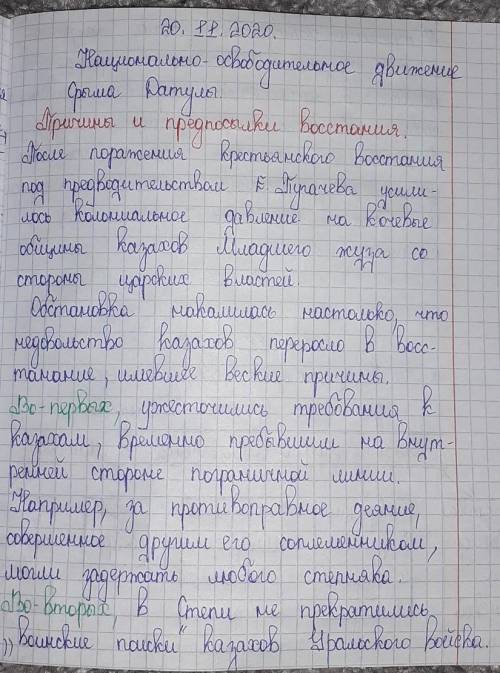 20. 11. 2020.
Национально-освободительное движение
Срыма Датулы.
Причины и предпосылки восстания.
После поражения крестьянского восстания
под предводительством Е. Пугачева усили-
лось колониальное давление на кочевые
общины казахов Младшего жуза со
стороны царских властей.
Обстановка накалилась настолько, что
недовольство казахов переросло в восс-
танание, имевшее веские причины.
Во-первых, ужесточились требования к
казахам, временно пребывшим на внут-
ренней стороне пограничной линии.
Например, за противоправное деяние,
совершенное другим его соплеменником,
могли задержать любого степняка.
Во-вторых, в Степи не прекратились
„воинские поиски" казахов Уральского войска.